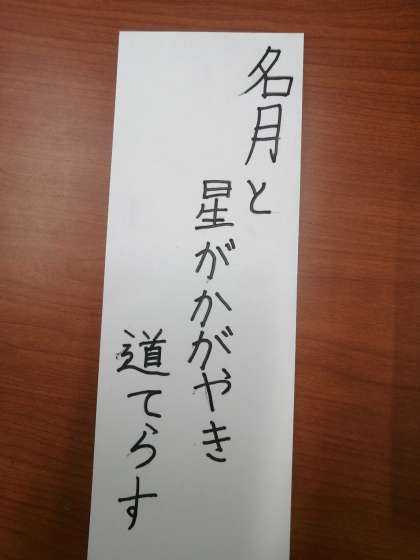 名月と
星がかがやき
道てらす